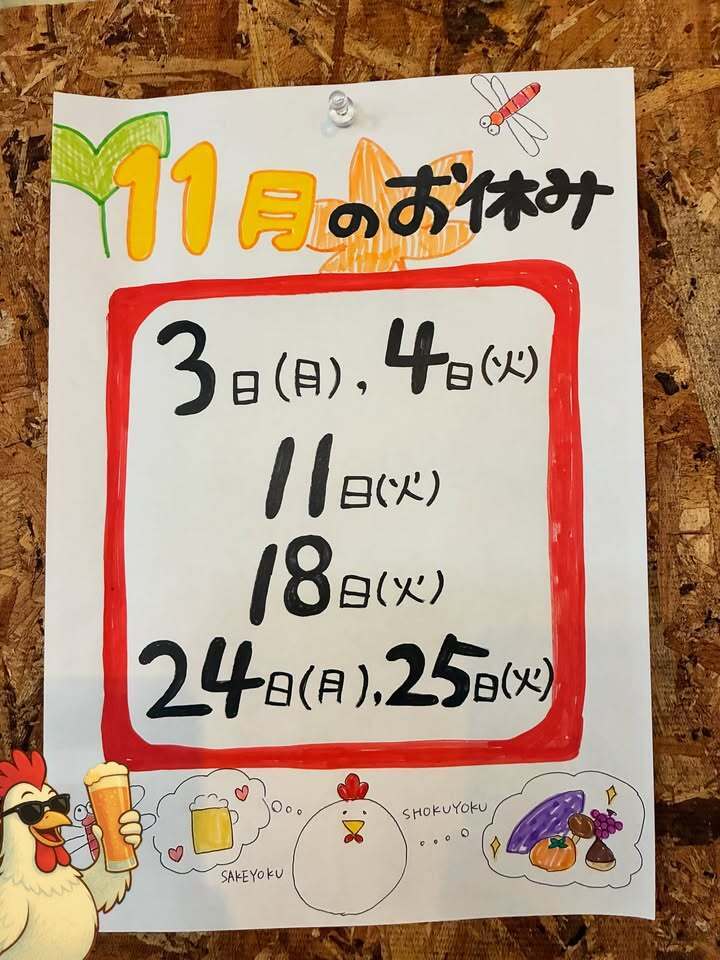 11月のお休み
3日(月),4日(火)
11日(火)
18日(火)
24日(月),25日(火)
SHOKUYOKU
SAKEYOKU